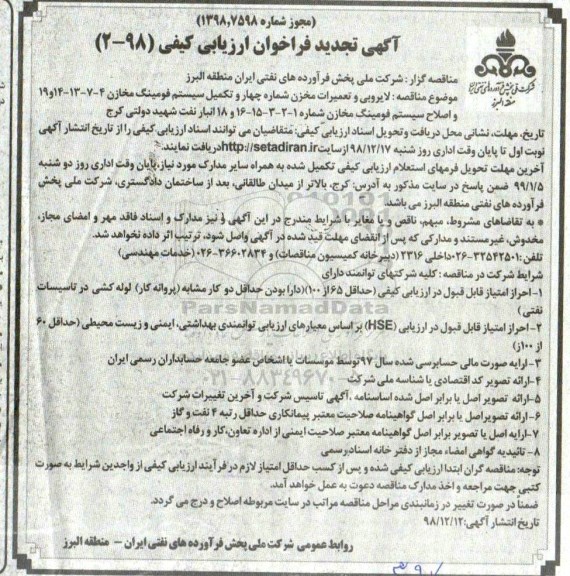 (مجوز شماره ۱۳۹۸,۷۵۹۸)
آگهی تجدید فراخوان ارزیابی کیفی (۹۸-۲)
شرکت ملی پخش فرآورده های نفتی ایران
منطقه البرز
مناقصه گزار : شرکت ملی پخش فرآورده های نفتی ایران منطقه البرز
موضوع مناقصه : لایروبی و تعمیرات مخزن شماره چهار و تکمیل سیستم فومینگ مخازن ۴-۷-۱۳-۱۴و۱۹
و اصلاح سیستم فومینگ مخازن شماره ۱-۲-۳-۱۵-۱۶ و ۱۸ انبار نفت شهید دولتی کرج
تاریخ، مهلت، نشانی محل دریافت وتحویل اسناد ارزیابی کیفی: متقاضیان می توانند اسناد ارزیابی کیفی را از تاریخ انتشار آگهی
نوبت اول تا پایان وقت اداری روز شنبه ۹۸/۱۲/۱۷ ازسایت http://setadiran.ir دریافت نمایند.
آخرین مهلت تحویل فرمهای استعلام ارزیابی کیفی تکمیل شده به همراه سایر مدارک مورد نیاز،پایان وقت اداری روز دو شنبه
۹۹/۱/۵ ضمن پاسخ در سایت مذکور به آدرس: کرج، بالاتر از میدان طالقانی، بعد از ساختمان دادگستری، شرکت ملی پخش
فرآورده های نفتی منطقه البرز می باشد.
* به تقاضاهای مشروط، مبهم، ناقص و یا مغایر با شرایط مندرج در این آگهی و نیز مدارک و اسناد فاقد مهر و امضای مجاز،
مخدوش، غیرمستند و مدارکی که پس از انقضای مهلت قید شده در آگهی واصل شود، ترتیب اثر داده نخواهد شد.
تلفن:۳۲۵۴۲۵۰۱-۰۲۶داخلی ۲۳۱۶ (دبیرخانه کمیسیون مناقصات) و ۳۶۶۰۲۸۳۴-۰۲۶ (خدمات مهندسی)
شرایط شرکت در مناقصه : کلیه شرکتهای توانمند دارای
۱-احراز امتیاز قابل قبول در ارزیابی کیفی (حداقل ۶۵از ۱۰۰)(دارا بودن حداقل دو کار مشابه (پروانه کار) لوله کشی در تاسیسات
نفتی )
۲- احراز امتیاز قابل قبول در ارزیابی (HSE) بر اساس معیارهای ارزیابی توانمندی بهداشتی، ایمنی و زیست محیطی (حداقل ۶۰
از ۱۰۰)
۳-ارایه صورت مالی حسابرسی شده سال ۹۷توسط موسسات یا اشخاص عضو جامعه حسابداران رسمی ایران
۴-ارائه تصویر کد اقتصادی یا شناسه ملی شرکت
۵-ارائه تصویر اصل یا برابر اصل شده اساسنامه ،آگهی تاسیس شرکت و آخرین تغییرات شرکت
۶-ارائه تصویراصل یا برابر اصل گواهینامه صلاحیت معتبر پیمانکاری حداقل رتبه ۴ نفت و گاز
۷-ارایه اصل یا تصویر برابر اصل گواهینامه معتبر صلاحیت ایمنی از اداره تعاون،کار و رفاه اجتماعی
۸- تائیدیه گواهی امضاء مجاز از دفتر خانه اسنادرسمی
توجه: مناقصه گران ابتدا ارزیابی کیفی شده و پس از کسب حداقل امتیاز لازم در فرآیند ارزیابی کیفی از واجدین شرایط به صورت
کتبی جهت مراجعه و اخذ مدارک مناقصه دعوت به عمل خواهد آمد.
ضمناً در صورت تغییر در زمانبندی مراحل مناقصه مراتب در سایت مربوطه اصلاح و درج می گردد.
تاریخ انتشار آگهی:۹۸/۱۲/۱۲
روابط عمومی شرکت ملی پخش فرآورده های نفتی ایران - منطقه البرز
ParsNamadData
۰۲۱-۸۸۳۴۹۶۷۰